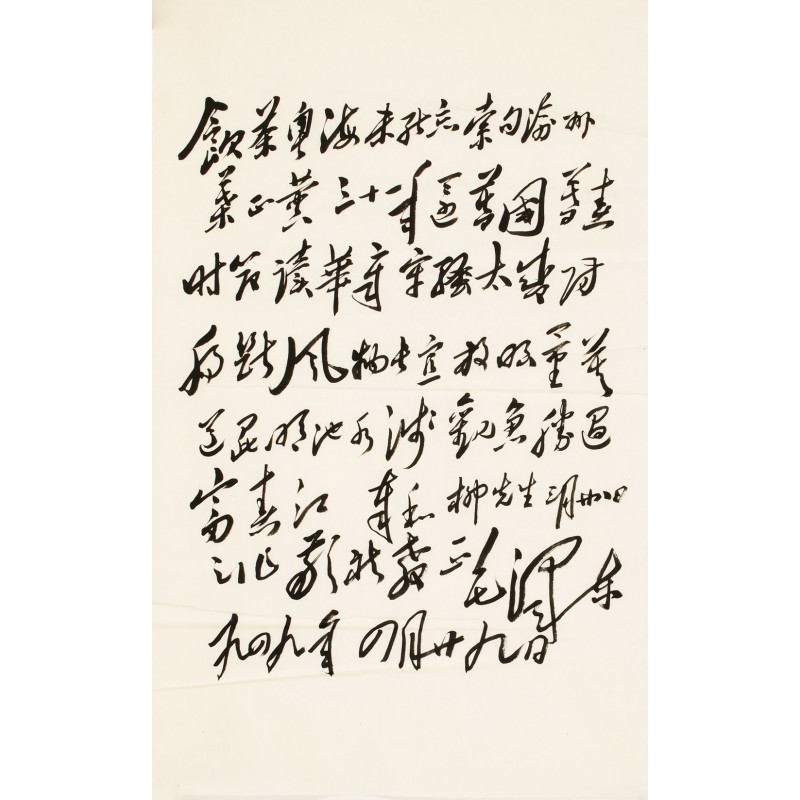 飲茶粵海未能忘索句渝州
葉正黃三十一年還舊國暮春
时節讀華章牢騷太盛防
腸斷風物長宜放眼量莫
道昆明池水淺觀魚勝過
富春江 奉和柳先生三月廿八日
之作敬祈教正 毛澤東
一九四九年四月廿九日